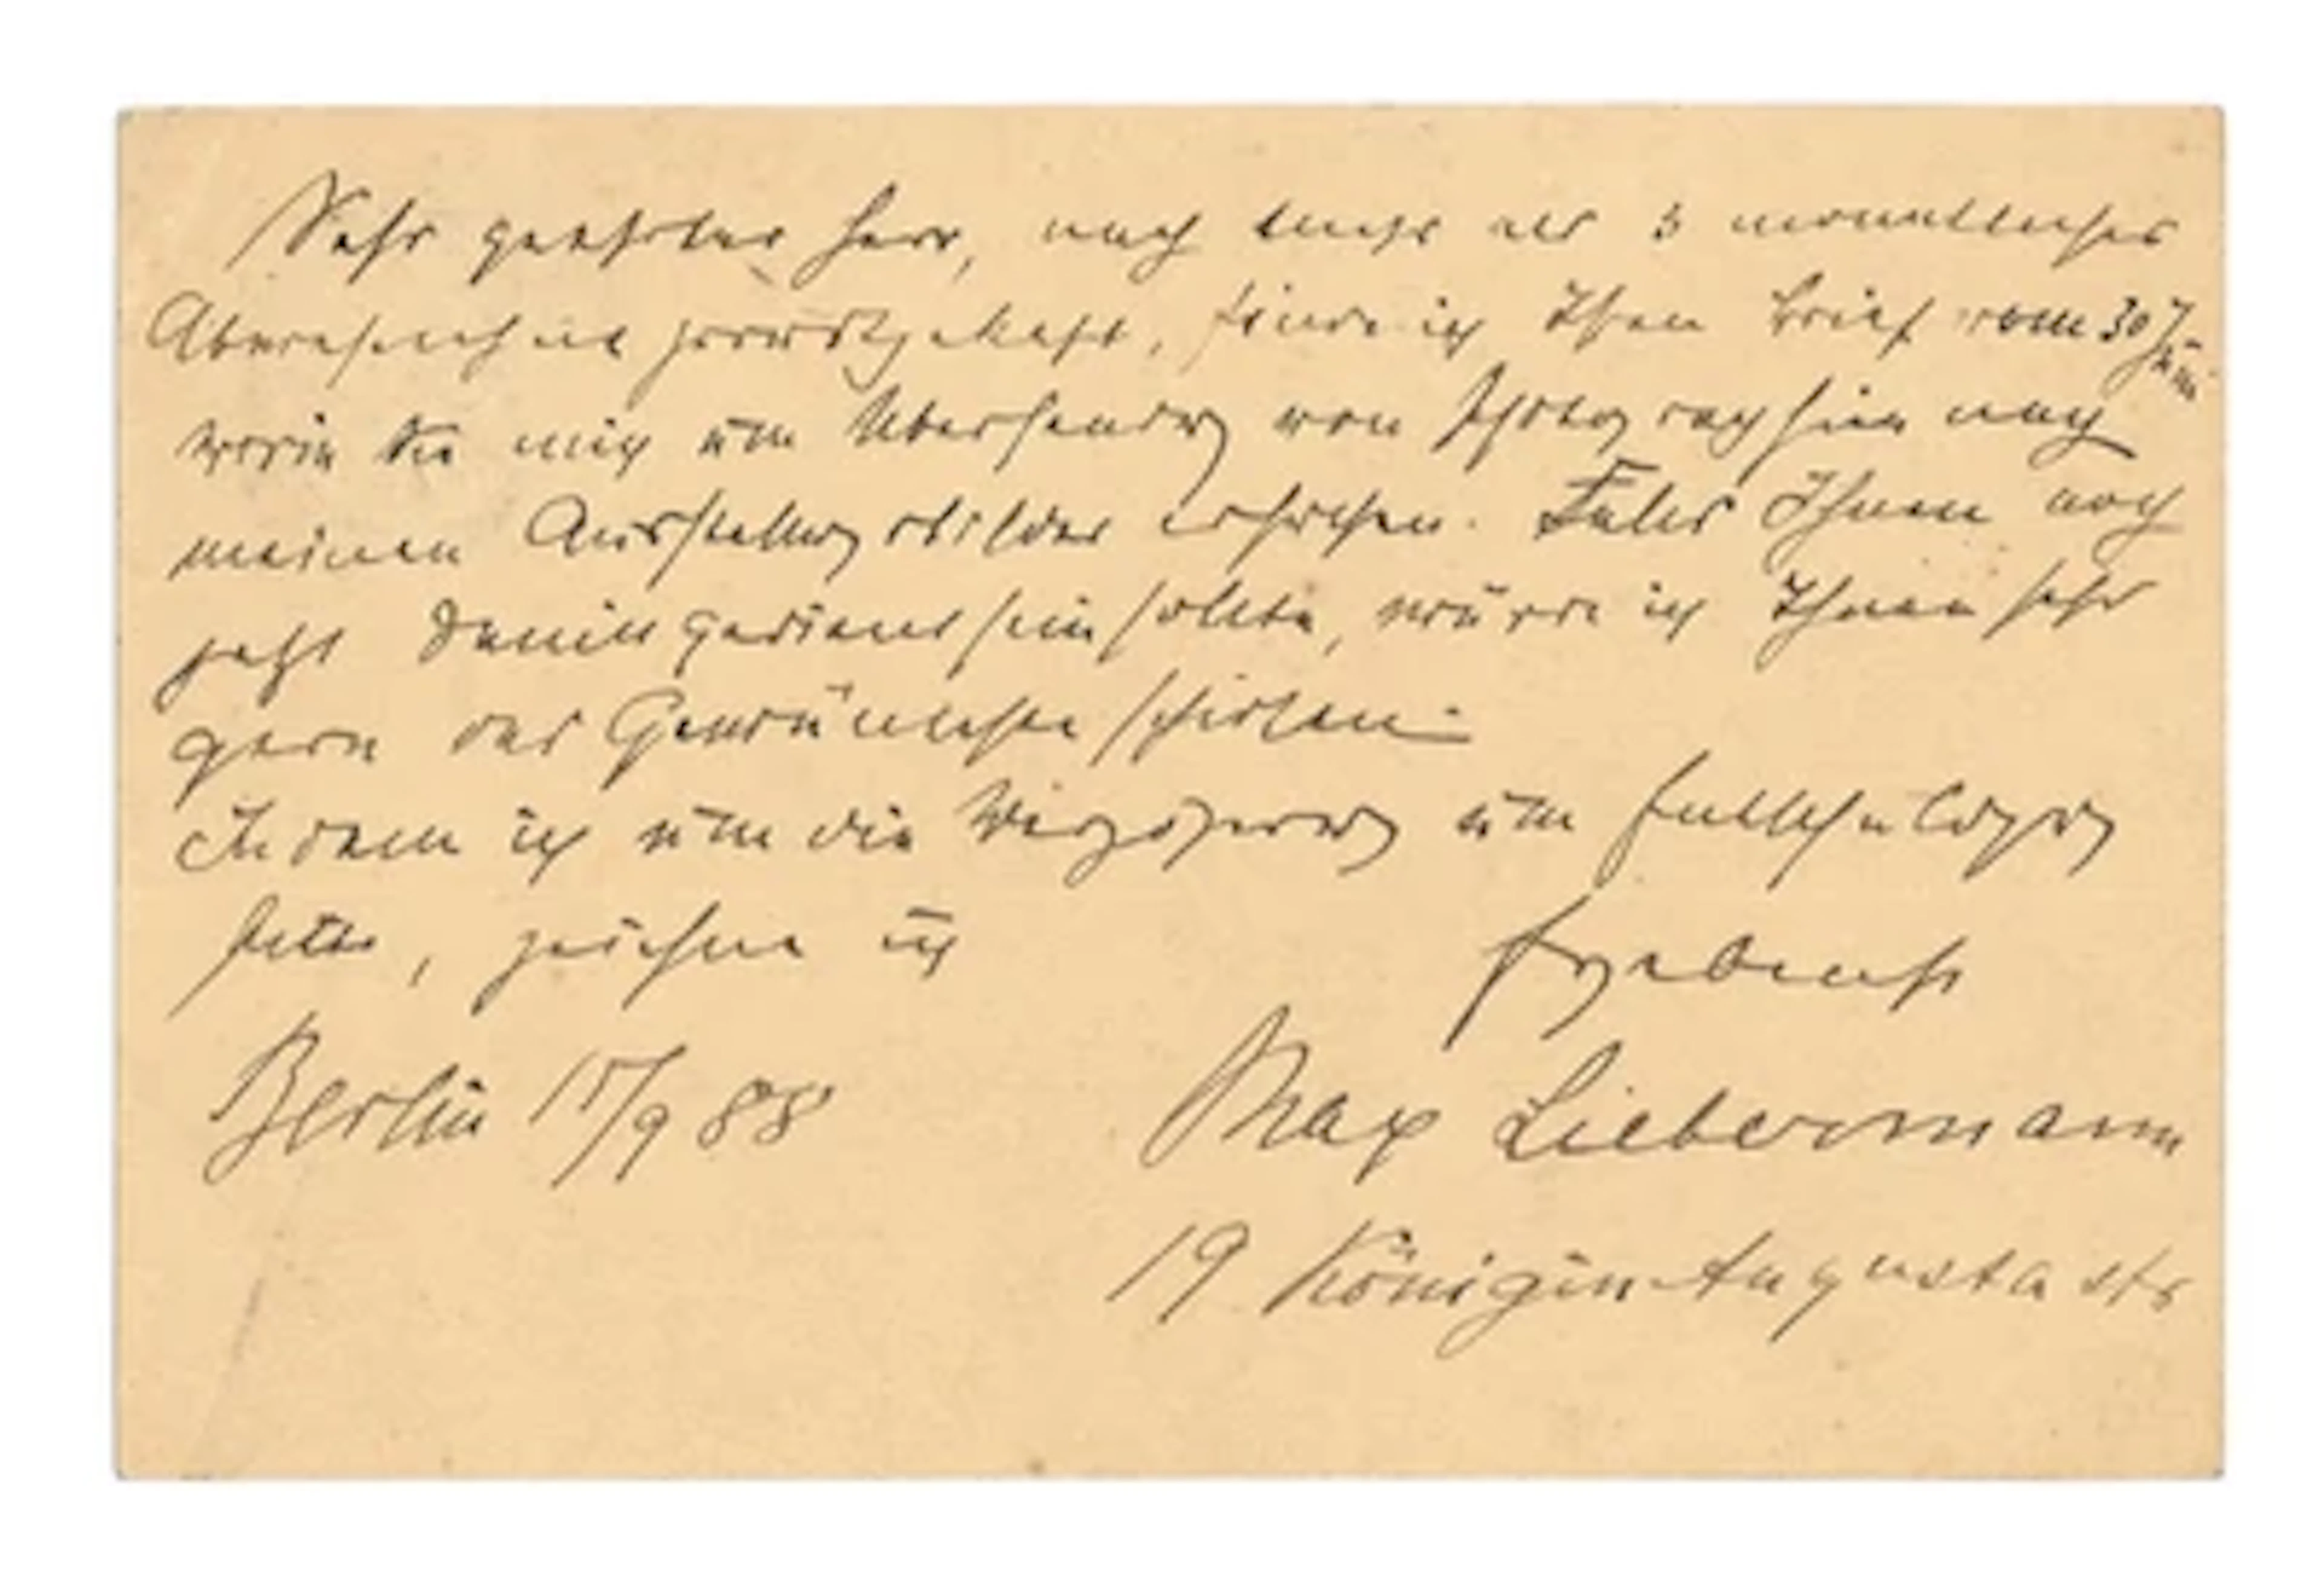 Sehr geehrter Herr, nach mehr als 3 monatlicher
Abwesenheit zurückgekehrt, finde ich Ihren Brief vom 30 Juni
worin Sie mich um Übersendung von Photographien nach
meinen Ausstellungsbilder ersuchen. Falls Ihnen noch
jetzt damit gedient sein sollte, würde ich Ihnen sehr
gern das Gewünschte schicken.
Indem ich um die Verzögerung um Entschuldigung
bitte, zeichne ich
ergebenst
Berlin 15/9 88
Max Liebermann
19 Königin Augusta str